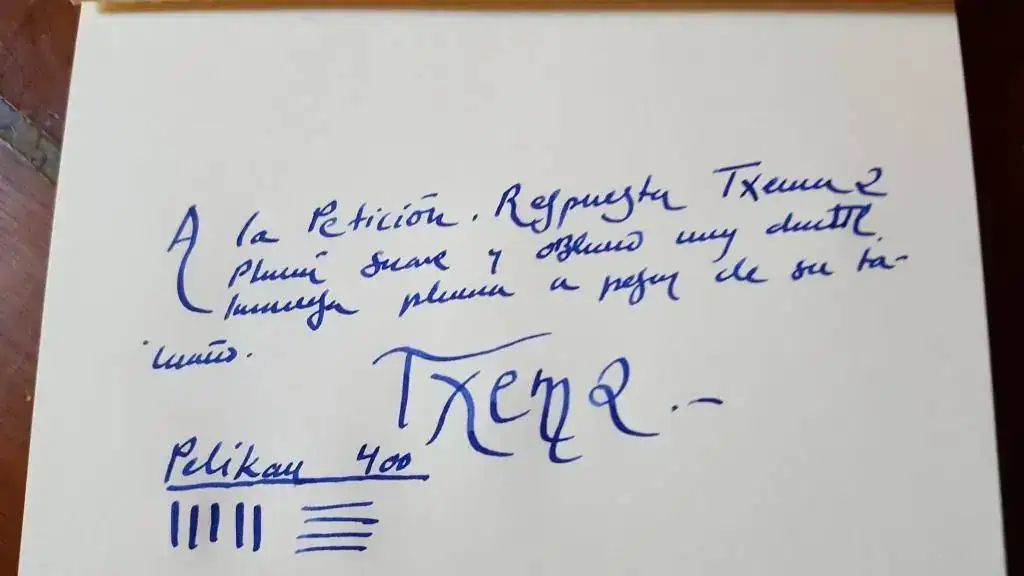 A la Petición. Respuesta Txema
Pluma suave y oblicuo muy
pluma a pesar de su ta-
maño.
Txema.-
Pelikan 400